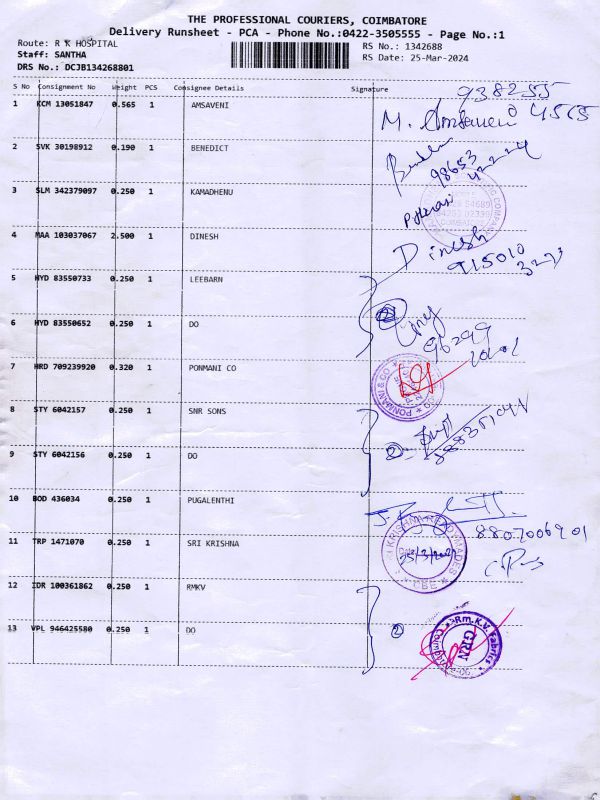 THE PROFESSIONAL COURIERS, COIMBATORE
Delivery Runsheet - PCA - Phone No.:0422-3505555 - Page No.:1
Route: R K HOSPITAL
RS No.: 1342688
Staff: SANTHA
RS Date: 25-Mar-2024
DRS No.: DCJB134268801
S No Consignment No Weight PCS Consignee Details Signature
938255
1 KCM 13051847 0.565 1 AMSAVENI
M. Amsaveni 4565
2 SVK 30198912 0.190 1 BENEDICT
98653
3 SLM 342379097 0.250 1 KAMADHENU
4 MAA 103037067 2.500 1 DINESH
Dinesh
915010
5 HYD 83550733 0.250 1 LEEBARN
2
6 HYD 83550652 0.250 1 DO
96299
7 HRD 709239920 0.320 1 PONMANI CO
PONMANI & CO
8 STY 6042157 0.250 1 SNR SONS
2
9 STY 6042156 0.250 1 DO
10 BOD 436034 0.250 1 PUGALENTHI
8807006901
11 TRP 1471070 0.250 1 SRI KRISHNA
25/3/2024
CBE
12 IDR 100361862 0.250 1 RMKV
13 VPL 946425580 0.250 1 DO
2
Rm.K.V. Fabrics
GRN